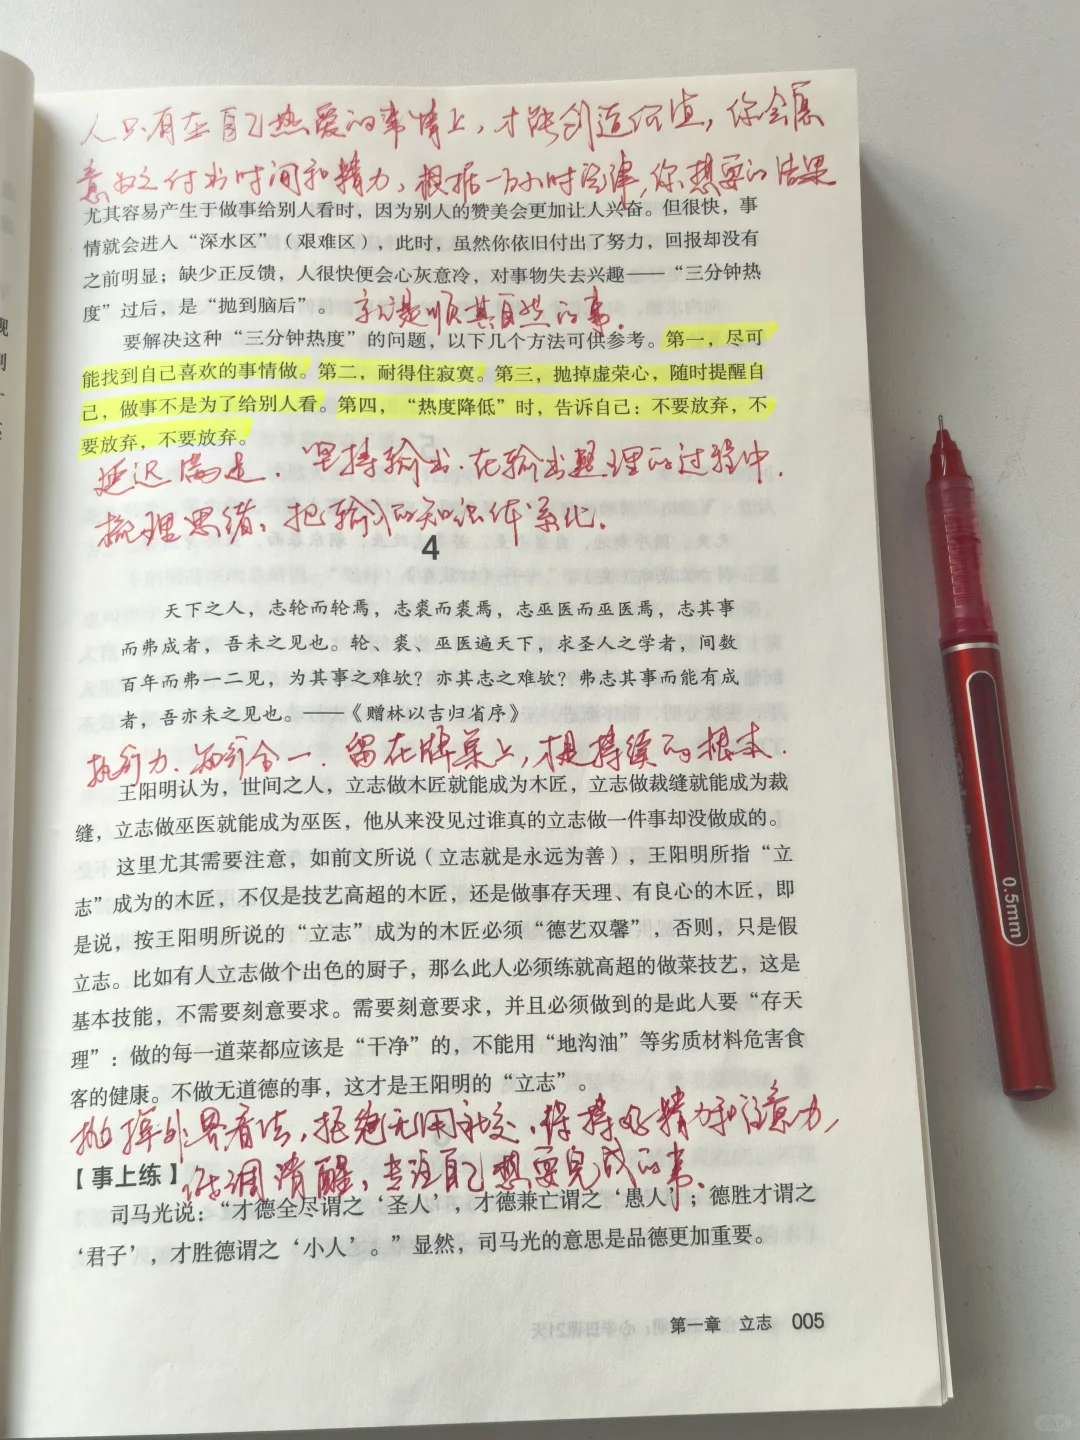 人只有在自己热爱的事情上，才能创造价值，你会愿
意为之付出时间和精力，根据一万小时定律，你想要的结果
尤其容易产生于做事给别人看时，因为别人的赞美会更加让人兴奋。但很快，事
情就会进入“深水区”（艰难区），此时，虽然你依旧付出了努力，回报却没有
之前明显；缺少正反馈，人很快便会心灰意冷，对事物失去兴趣——“三分钟热
度”过后，是“抛到脑后”。
就是顺其自然的事。
要解决这种“三分钟热度”的问题，以下几个方法可供参考。第一，尽可
能找到自己喜欢的事情做。第二，耐得住寂寞。第三，抛掉虚荣心，随时提醒自
己，做事不是为了给别人看。第四，“热度降低”时，告诉自己：不要放弃，不
要放弃，不要放弃。
延迟满足．坚持输出．在输出整理的过程中．
梳理思绪，把输入的知识体系化．
4
天下之人，志轮而轮焉，志裘而裘焉，志巫医而巫医焉，志其事
而弗成者，吾未之见也。轮、裘、巫医遍天下，求圣人之学者，间数
百年而弗一二见，为其事之难欤？亦其志之难欤？弗志其事而能有成
者，吾亦未之见也。——《赠林以吉归省序》
执行力．知行合一．留在牌桌上，才是持续的根本．
王阳明认为，世间之人，立志做木匠就能成为木匠，立志做裁缝就能成为裁
缝，立志做巫医就能成为巫医，他从来没见过谁真的立志做一件事却没做成的。
这里尤其需要注意，如前文所说（立志就是永远为善），王阳明所指“立
志”成为的木匠，不仅是技艺高超的木匠，还是做事存天理、有良心的木匠，即
是说，按王阳明所说的“立志”成为的木匠必须“德艺双馨”，否则，只是假
立志。比如有人立志做个出色的厨子，那么此人必须练就高超的做菜技艺，这是
基本技能，不需要刻意要求。需要刻意要求，并且必须做到的是此人要“存天
理”：做的每一道菜都应该是“干净”的，不能用“地沟油”等劣质材料危害食
客的健康。不做无道德的事，这才是王阳明的“立志”。
抛掉外界看法，拒绝无用社交，保持好精力和注意力，
【事上练】
低调清醒，专注自己想要完成的事．
司马光说：“才德全尽谓之‘圣人’，才德兼亡谓之‘愚人’；德胜才谓之
‘君子’，才胜德谓之‘小人’。”显然，司马光的意思是品德更加重要。
第一章 立志 005
0.5mm